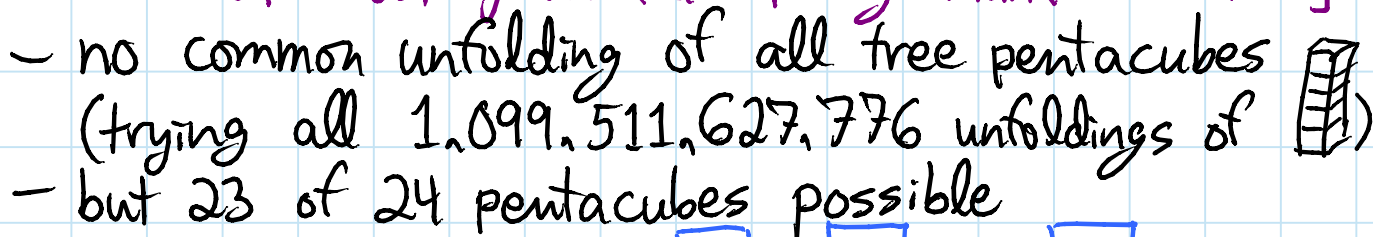 - no common unfolding of all tree pentacubes
(trying all 1,099,511,627,776 unfoldings of )
- but 23 of 24 pentacubes possible